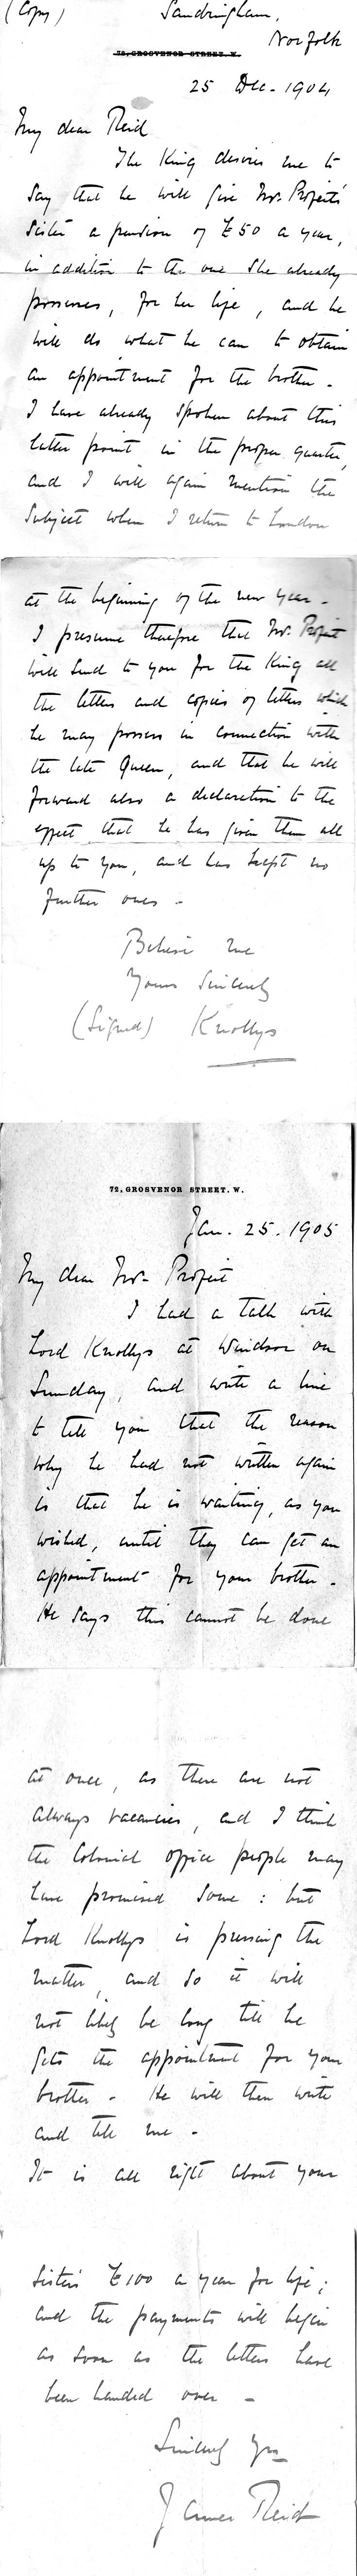 (Copy)
Sandringham,
Norfolk
72, GROSVENOR STREET. W.
25 Dec. 1904
My dear Reid
The King desires me to
say that he will give Mr. Profeit's
sister a pension of £50 a year,
in addition to the one she already
possesses, for her life, and he
will do what he can to obtain
an appointment for the brother.
I have already spoken about this
latter point in the proper quarter,
and I will again mention the
subject when I return to London
at the beginning of the new year.
I presume therefore that Mr. Profeit
will send to you for the King all
the letters and copies of letters which
he may possess in connection with
the late Queen, and that he will
forward also a declaration to the
effect that he has given them all
up to you, and has kept no
further ones.
Believe me
Yours sincerely
(Signed) Knollys
72, GROSVENOR STREET. W.
Jan. 25. 1905
My dear Mr. Profeit
I had a talk with
Lord Knollys at Windsor on
Sunday, and write a line
to tell you that the reason
why he had not written again
is that he is waiting, as you
wished, until they can get an
appointment for your brother.
He says this cannot be done
at once, as there are not
always vacancies, and I think
the Colonial office people may
have promised some: but
Lord Knollys is pressing the
matter, and so it will
not likely be long till he
gets the appointment for your
brother. He will then write
and tell me.
It is all right about your
sister's £100 a year for life;
and the payments will begin
as soon as the letters have
been handed over.
Sincerely yrs
James Reid